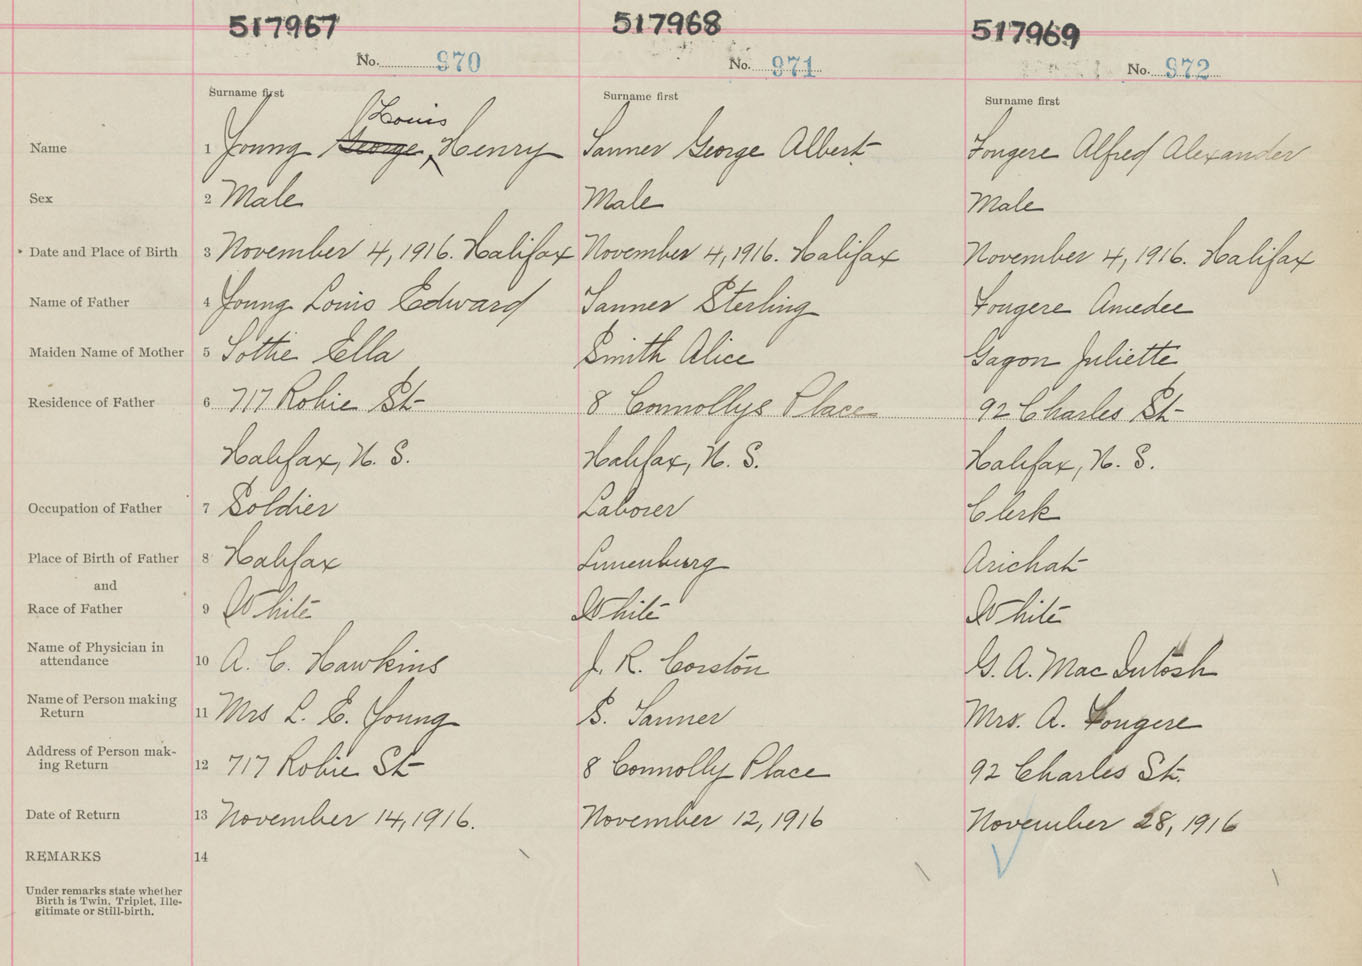 517967 517968 517969
No. 970 No. 971 No. 972
Surname first Surname first Surname first
Louis
Name 1 Young George Henry Tanner George Albert Fougere Alfred Alexander
Sex 2 Male Male Male
Date and Place of Birth 3 November 4, 1916. Halifax November 4, 1916. Halifax November 4, 1916. Halifax
Name of Father 4 Young Louis Edward Tanner Sterling Fougere Amedee
Maiden Name of Mother 5 Tottie Ella Smith Alice Gagon Juliette
Residence of Father 6 717 Robie St 8 Connollys Place 92 Charles St
Halifax, N. S. Halifax, N. S. Halifax, N. S.
Occupation of Father 7 Soldier Laborer Clerk
Place of Birth of Father 8 Halifax Lunenburg Arichat
and
Race of Father 9 White White White
Name of Physician in
attendance 10 A. C. Hawkins J. R. Corston G. A. MacIntosh
Name of Person making
Return 11 Mrs L. E. Young S. Tanner Mrs. A. Fougere
Address of Person mak-
ing Return 12 717 Robie St 8 Connolly Place 92 Charles St.
Date of Return 13 November 14, 1916. November 12, 1916 November 28, 1916
REMARKS 14
Under remarks state whether
Birth is Twin, Triplet, Ille-
gitimate or Still-birth.